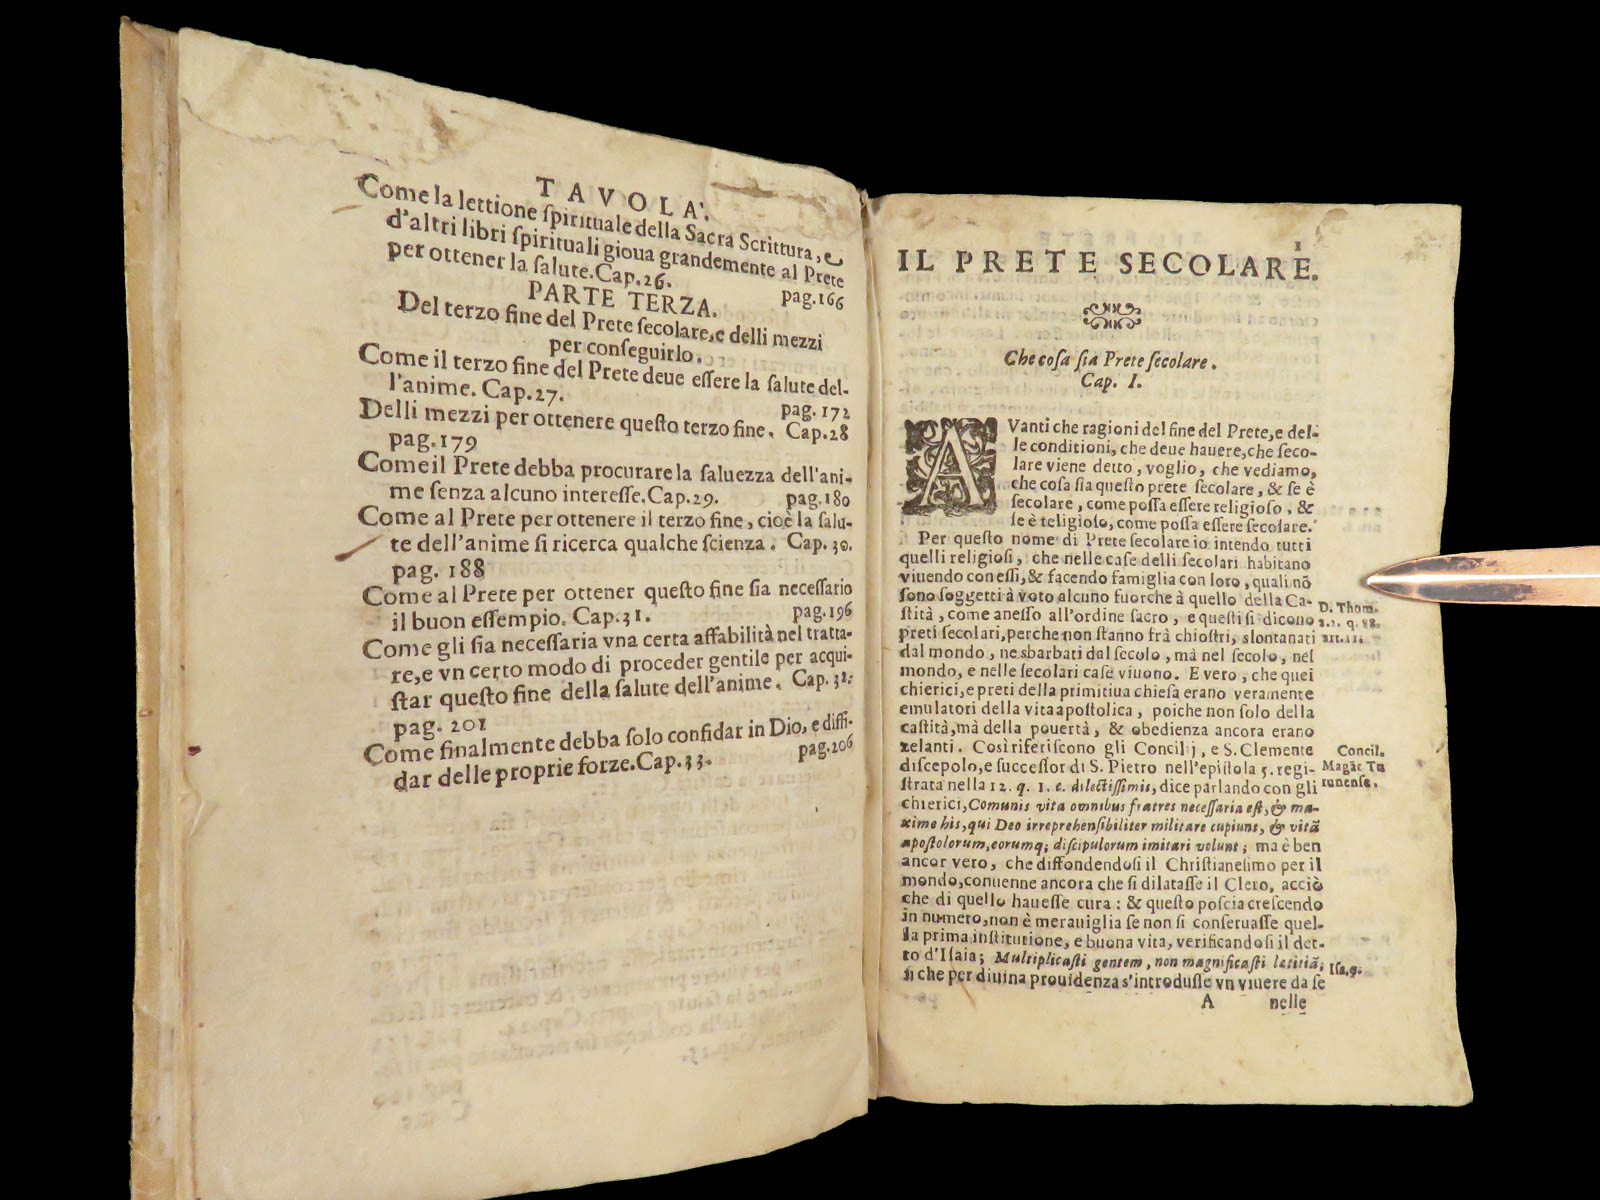 TAVOLA.
Come la lettione ſpirituale della Sacra Scrittura, e
d'altri libri ſpirituali gioua grandemente al Prete
per ottener la ſalute. Cap. 26. pag. 166
PARTE TERZA.
Del terzo fine del Prete ſecolare, e delli mezzi
per conſeguirlo.
Come il terzo fine del Prete deue eſſere la ſalute del-
l'anime. Cap. 27. pag. 172
Delli mezzi per ottenere queſto terzo fine. Cap. 28
pag. 179
Come il Prete debba procurare la ſaluezza dell'ani-
me ſenza alcuno intereſſe. Cap. 29. pag. 180
Come al Prete per ottenere il terzo fine, cioè la ſalu-
te dell'anime ſi ricerca qualche ſcienza. Cap. 30.
pag. 188
Come al Prete per ottener queſto fine ſia neceſſario
il buon eſſempio. Cap. 31. pag. 196
Come gli ſia neceſſaria vna certa affabilità nel tratta-
re, e vn certo modo di proceder gentile per acqui-
ſtar queſto fine della ſalute dell'anime. Cap. 32.
pag. 201
Come finalmente debba ſolo confidar in Dio, e diffi-
dar delle proprie forze. Cap. 33. pag. 206
1
IL PRETE SECOLARE.
Che coſa ſia Prete ſecolare.
Cap. I.
AVanti che ragioni del fine del Prete, e del-
le conditioni, che deue hauere, che ſeco-
lare viene detto, voglio, che vediamo,
che coſa ſia queſto prete ſecolare, & ſe è
ſecolare, come poſſa eſſere religioſo, &
ſe è religioſo, come poſſa eſſere ſecolare.
Per queſto nome di Prete ſecolare io intendo tutti
quelli religioſi, che nelle caſe delli ſecolari habitano
viuendo con eſſi, & facendo famiglia con loro, quali nō
ſono ſoggetti à voto alcuno fuorche à quello della Ca-
ſtità, come aneſſo all'ordine ſacro, e queſti ſi dicono
preti ſecolari, perche non ſtanno frà chioſtri, slontanati
dal mondo, ne sbarbati dal ſecolo, mà nel ſecolo, nel
mondo, e nelle ſecolari caſe viuono. E vero, che quei
chierici, e preti della primitiua chieſa erano veramente
emulatori della vita apoſtolica, poiche non ſolo della
caſtità, mà della pouertà, & obedienza ancora erano
zelanti. Così riferiſcono gli Concilij, e S. Clemente
diſcepolo, e ſucceſſor di S. Pietro nell'epiſtola 5. regi-
ſtrata nella 12. q. 1. c. dilectiſſimis, dice parlando con gli
chierici, Comunis vita omnibus fratres neceſſaria eſt, & ma-
xime his, qui Deo irreprehenſibiliter militare cupiunt, & vitā
apoſtolorum, eorumq; diſcipulorum imitari volunt; ma è ben
ancor vero, che diffondendoſi il Chriſtianeſimo per il
mondo, conuenne ancora che ſi dilataſſe il Clero, acciò
che di quello haueſſe cura: & queſto poſcia creſcendo
in numero, non è merauiglia ſe non ſi conſeruaſſe quel-
la prima inſtitutione, e buona vita, verificandoſi il det-
to d'Iſaia; Multiplicaſti gentem, non magnificaſti letitiā;
ſi che per diuina prouidenza s'introduſſe vn viuere da ſe
A nelle
D. Thom.
2.2. q. 88.
art. 11.
Concil.
Magāt. Tu
runenſe.
Iſa. 9.